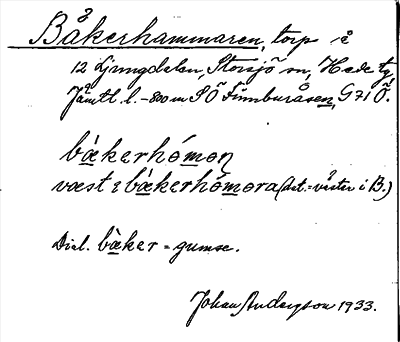 Båkerhammaren, torp i å
12 Ljungdalen, Storsjö sn, Hede tg,
Jämtl. l. - 800 m SÖ Finnburåsen, G 71 Ö.
bàkerhómon
væst i bàkerhómora (det. = väster i B.)
Dial. bàker = gumse.
Johan Anderson 1933.